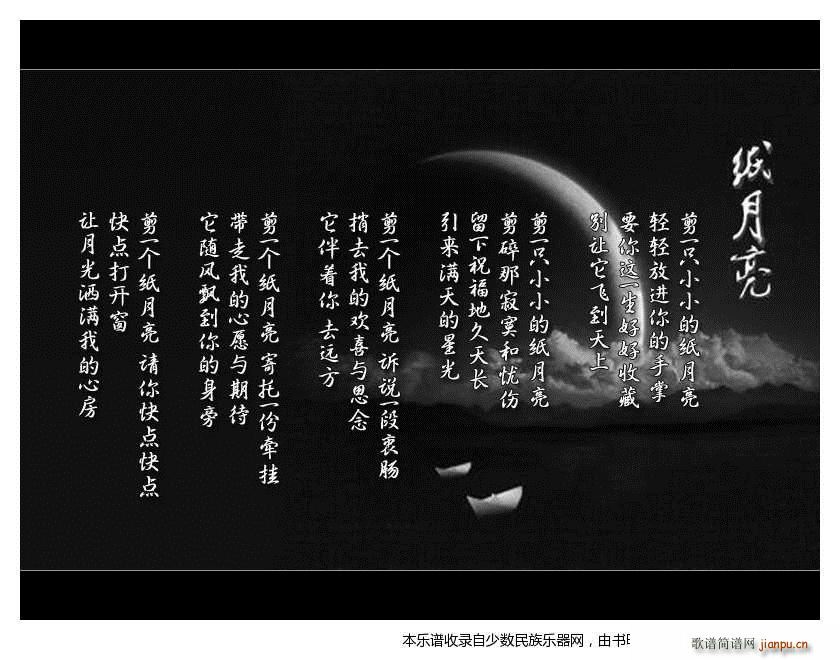 纸月亮
剪一只小小的纸月亮
轻轻放进你的手掌
要你这一生好好收藏
别让它飞到天上
剪一只小小的纸月亮
剪碎那寂寞和忧伤
留下祝福地久天长
引来满天的星光
剪一个纸月亮 诉说一段衷肠
捎去我的欢喜与思念
它伴着你 去远方
剪一个纸月亮 寄托一份牵挂
带走我的心愿与期待
它随风飘到你的身旁
剪一个纸月亮 请你快点快点
快点打开窗
让月光洒满我的心房
本乐谱收录自少数民族乐器网，由书
歌谱简谱网 jianpu.cn